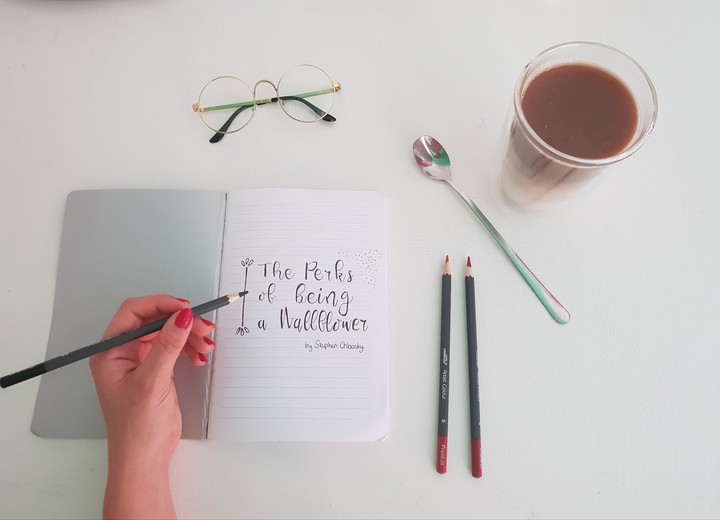 The Perks
of being
a Wallflower
by Stephen Chbosky